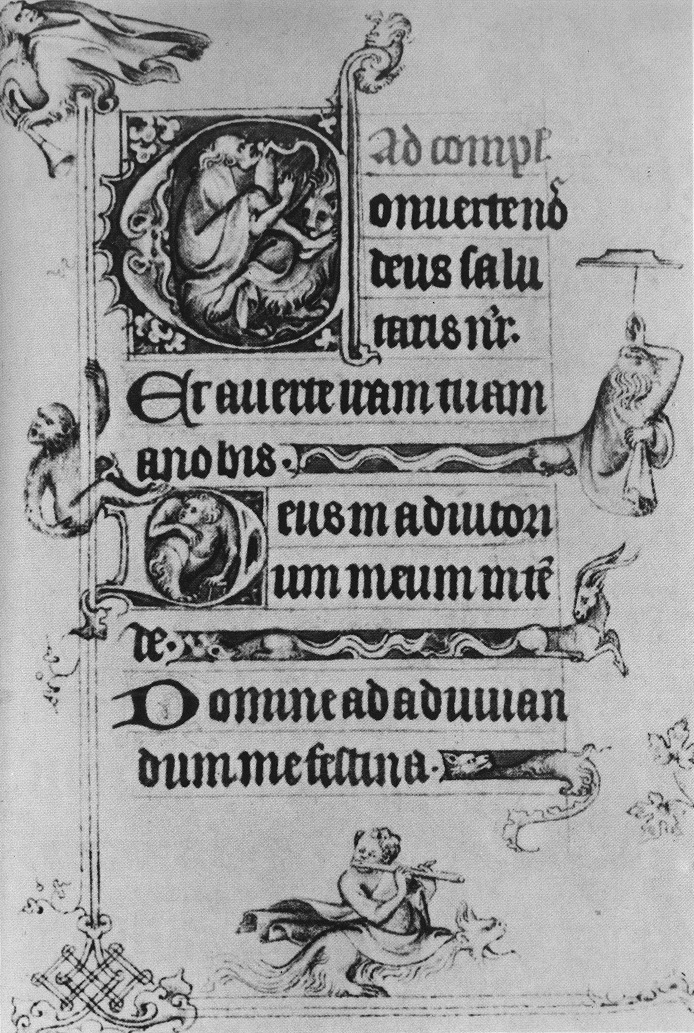 Ad compl
Conuertend
deus salu
taris nr.
Et auerte iram tuam
a nobis.
Deus in adiutori
um meum inte
de.
Domine ad adiuuan
dum me festina.